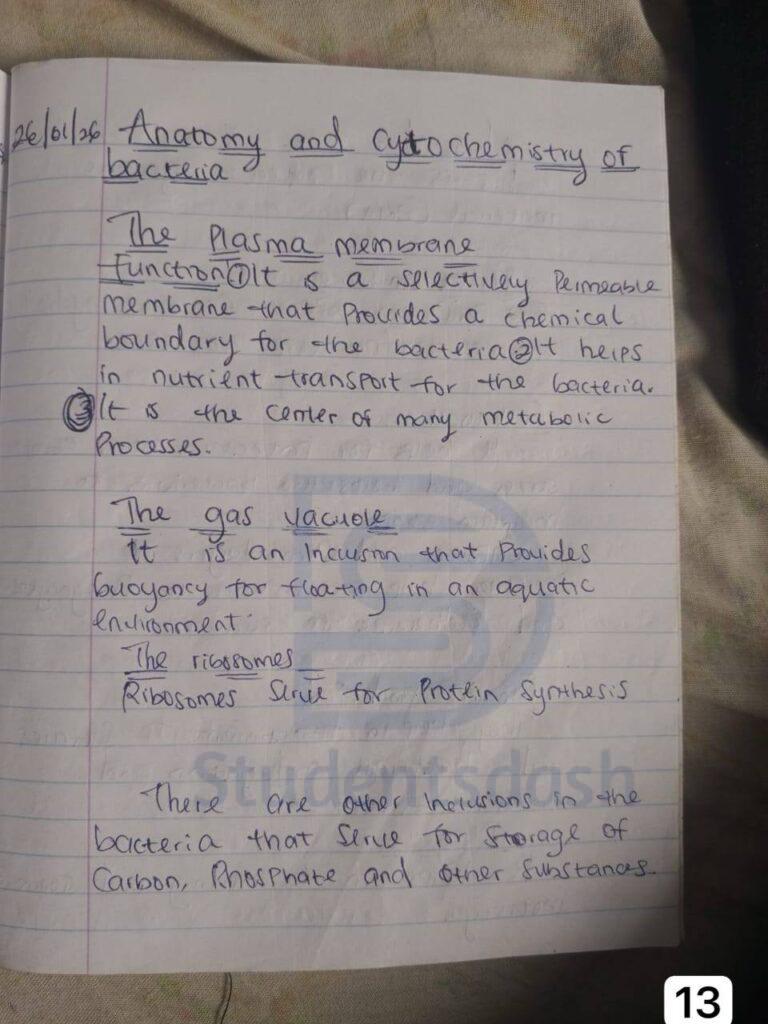 26/01/26 Anatomy and Cytochemistry of
bacteria
The Plasma membrane
function ① It is a selectively Permeable
membrane that Provides a chemical
boundary for the bacteria ② It helps
in nutrient transport for the bacteria.
③ It is the center of many metabolic
Processes.
The gas vacuole
It is an Inclusion that Provides
buoyancy for floating in an aquatic
environment.
The ribosomes
Ribosomes Serve for Protein Synthesis
Studentsdash
There are other Inclusions in the
bacteria that Serve for Storage of
Carbon, Phosphate and other Substances.
13